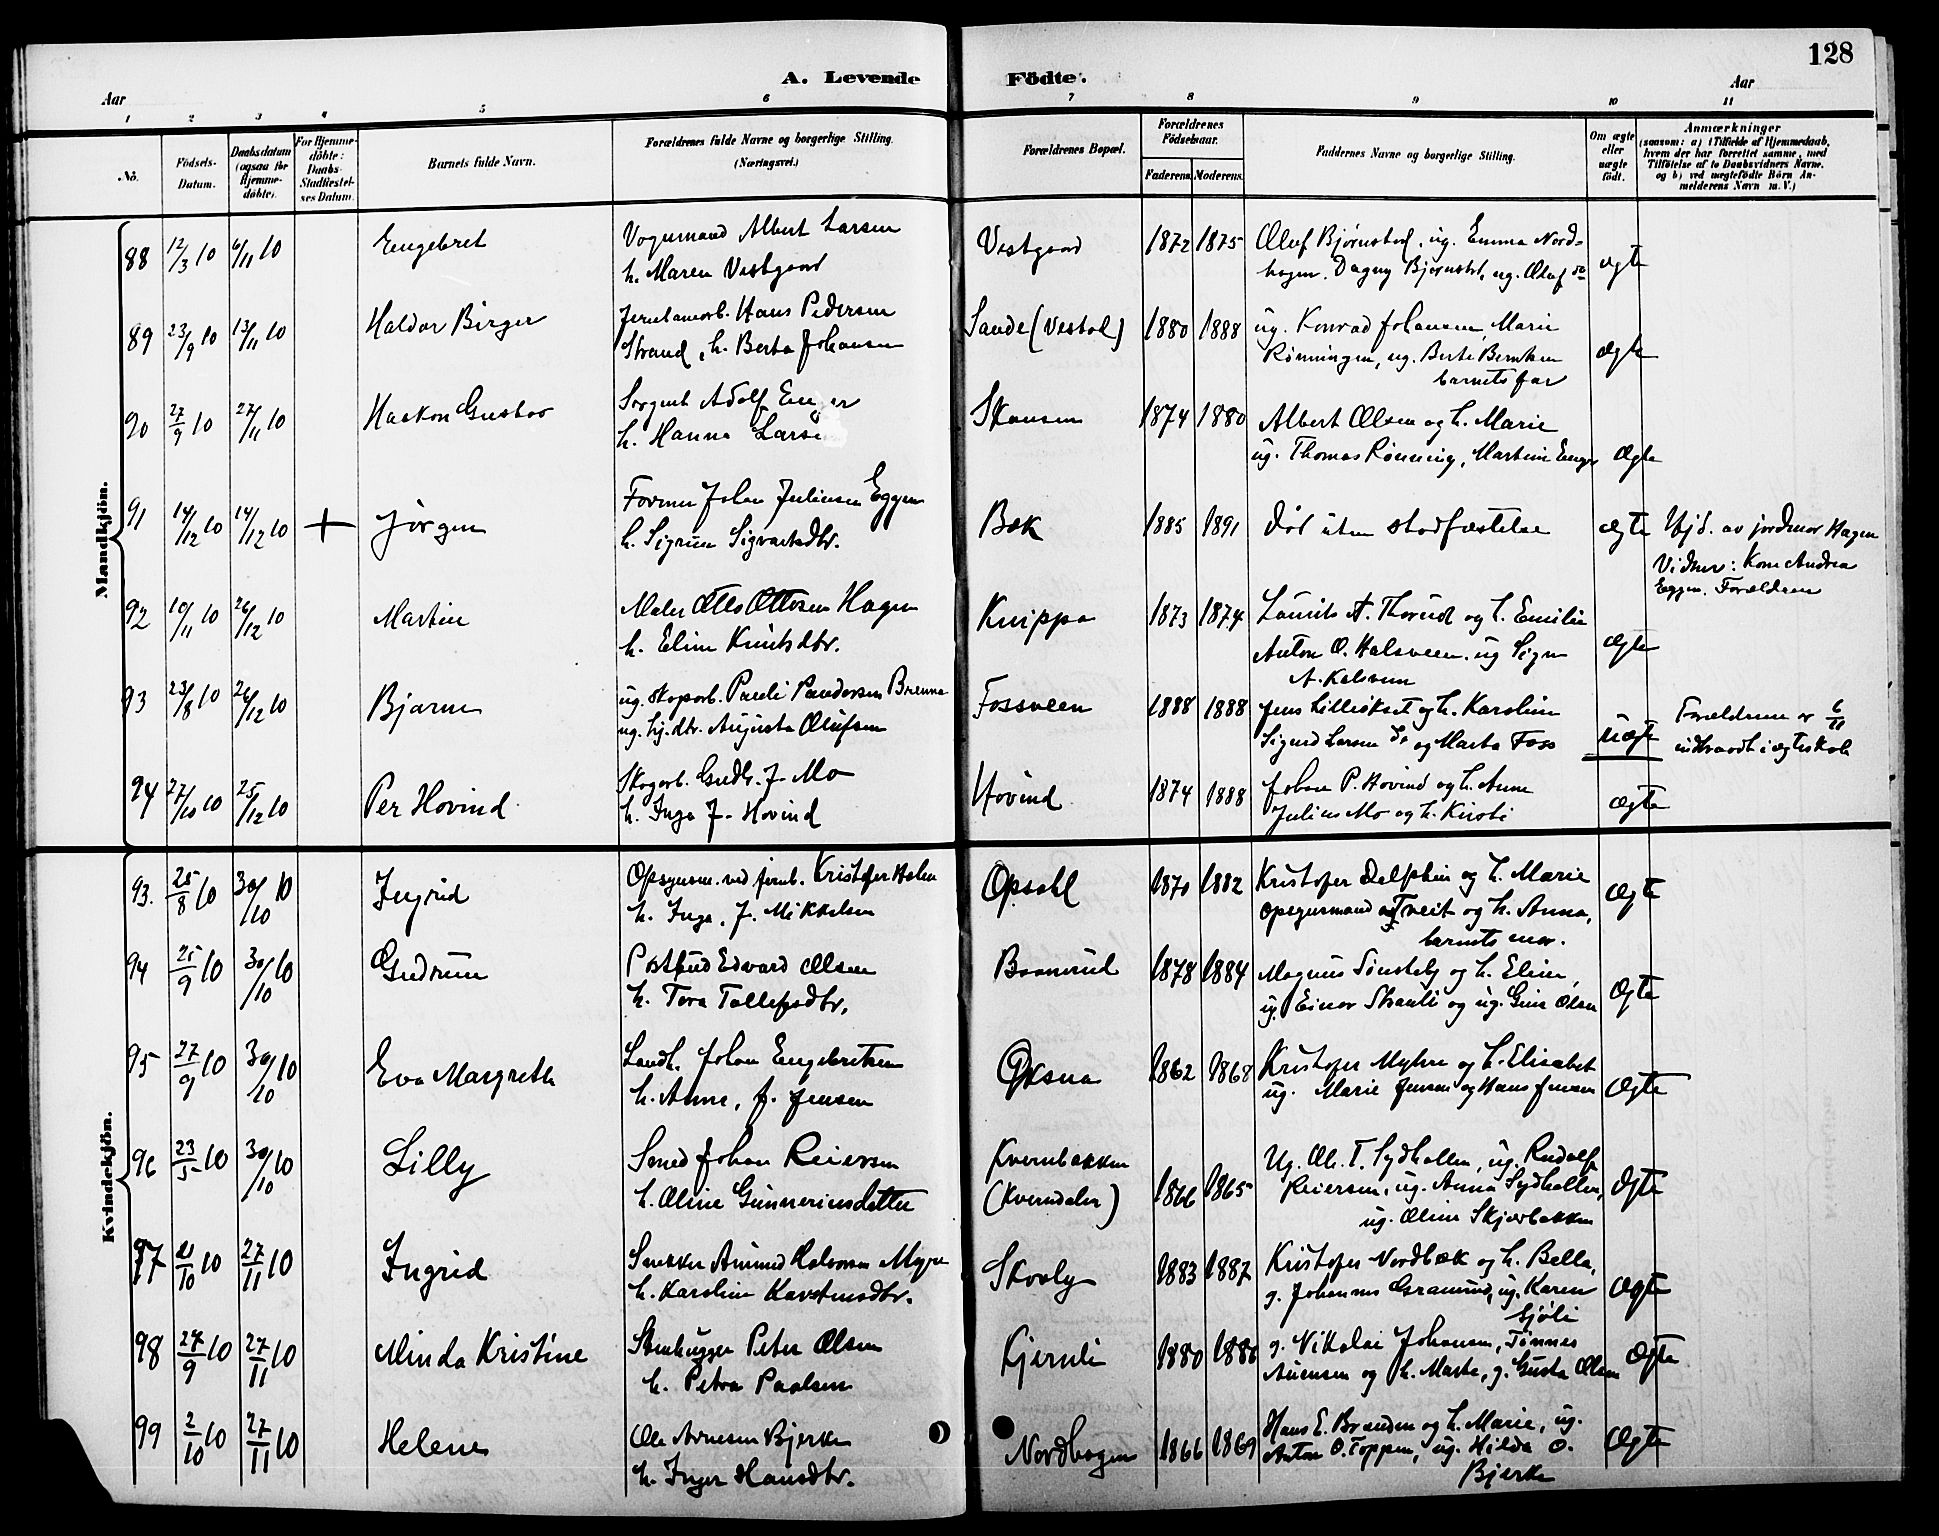 128
A. Levende Födte.
Aar
Aar
1 2 3 4 5 6 7 8 9 10 11
No.
Födsels-Datum.
Daabsdatum (ogsaa for Hjemme-döbte).
For Hjemme-döbte: Daabs-Stadfæstel-ses Datum.
Barnets fulde Navn.
Forældrenes fulde Navne og borgerlige Stilling. (Næringsvei.)
Forældrenes Bopæl.
Forældrenes Födselsaar.
Faderens. Moderens.
Faddernes Navne og borgerlige Stilling.
Om ægte eller uægte födt.
Anmærkninger
(saasom: a) i Tilfælde af Hjemmedaab, hvem der har forrettet samme, med Tilföielse af to Daabsvidners Navne, og b) ved uægtefödte Börn An-melderens Navn m. V.)
Mandkjön.
88 12/3 10 6/11 10 Engebret
Vognmand Albert Larsen
h. Maren Vestgaard
Vestgaard 1872 1875
Oluf Bjørnstad, ug. Emma Nord-
hagen. Dagny Bjørnst., ug. Oluf do
ægte
89 23/9 10 13/11 10 Haldor Birger
Jernbanearb. Hans Pedersen
Strand, h. Berta Johansen
Sande (Vestad) 1880 1888
ug. Konrad Johansen, Marie
Rønningen, ug. Berte Berntsen
barnets far
ægte
90 27/9 10 27/11 10 Haakon Gustav
Sergent Adolf Enger
h. Hanna Larsen
Skansen 1874 1880
Albert Olsen og h. Marie
ug. Thomas Rønning, Martin Enger
Ægte
91 14/12 10 14/12 10 + Jørgen
Former Johan Juliussen Eggen
h. Sigrun Sigvartsdtr.
Bæk 1885 1891
død uten stadfæstelse
ægte
Hjd. av jordmor Hagen
Vidner: Kone Andrea
Eggen. Forældrene
92 10/11 10 26/12 10 Martin
Maler Otto Ottosen Hagen
h. Eline Knutsdtr.
Knippa 1873 1874
Laurits A. Thorud og h. Emilie
Anton O. Halsveen, ug Signe
A. Halsveen
ægte
93 23/8 10 26/12 10 Bjarne
ug. skogarb. Pauli Paudersen Brenna
ug. hj. dtr. Augusta Olufsen
Fossveen 1888 1888
Jens Lilleökset og h. Karoline
Sigurd Larsen do og Marta Foss
uægte
Forældrene er 6/11
indtraadt i ægteskab
94 27/10 10 25/12 10 Per Hovind
Skogarb. Gudb. J. Mo
h. Inga J. Hovind
Hovind 1874 1888
Johan P. Hovind og h. Anne
Julius Mo og h. Kirsti
ægte
Kvindekjön.
93. 25/8 10 30/10 10 Ingrid
Opsynsm. ved jernb. Kristofer Holen
h. Inga, J. Mikkelsen
Opsahl 1870 1882
Kristofer Delphin og h. Marie
opsynsmand Tveit og h. Anna,
barnets mor.
ægte
94 25/9 10 30/10 10 Gudrun
Postbud Edvard Olsen
h. Tora Tollefsdtr.
Baanrud 1878 1884
Magnus Sønsteby og h. Eline,
ug. Einar Skauli og ug. Gina Olsen
Ægte
95 27/9 10 30/10 10 Eva Margrethe
Landh. Johan Engebretsen
h. Anne, f. Jensen
Øksna 1862 1868
Kristofer Myhre og h. Elisabet
ug. Marie Jensen og Hans Jensen
Ægte
96 23/5 10 30/10 10 Lilly
Smed Johan Reiersen
h. Oline Gunneriusdatter
Kvernbakken
(Kverndalen) 1866 1865
Ug. Ole T. Sydhallen, ug. Rudolf
Reiersen, ug. Anna Sydhallen,
ug. Oline Skjærbakken
Ægte
97 21/10 10 27/11 10 Ingrid
Snekker Amund Halvorsen Mogen
h. Karoline Karstensdtr.
Skoely 1883 1887
Kristofer Nordbæk og h. Bella,
g. Johannes Granrud, ug. Karen
Sjøli
ægte
98 27/9 10 27/11 10 Minda Kristine
Stenhugger Peter Olsen
h. Petra Paalsen
Kjernli 1880 1886
g. Nikolai Johansen, Tønnes
Auensen og h. Marta, g. Gusta Olsen
Ægte
99 2/10 10 27/11 10 Helene
Ole Arnesen Bjerke
h. Inger Hansdtr.
Nordhagen 1866 1869
Hans E. Branden og h. Marie, ug.
Anton O. Toppen, ug. Hilda O.
Bjerke
Ægte